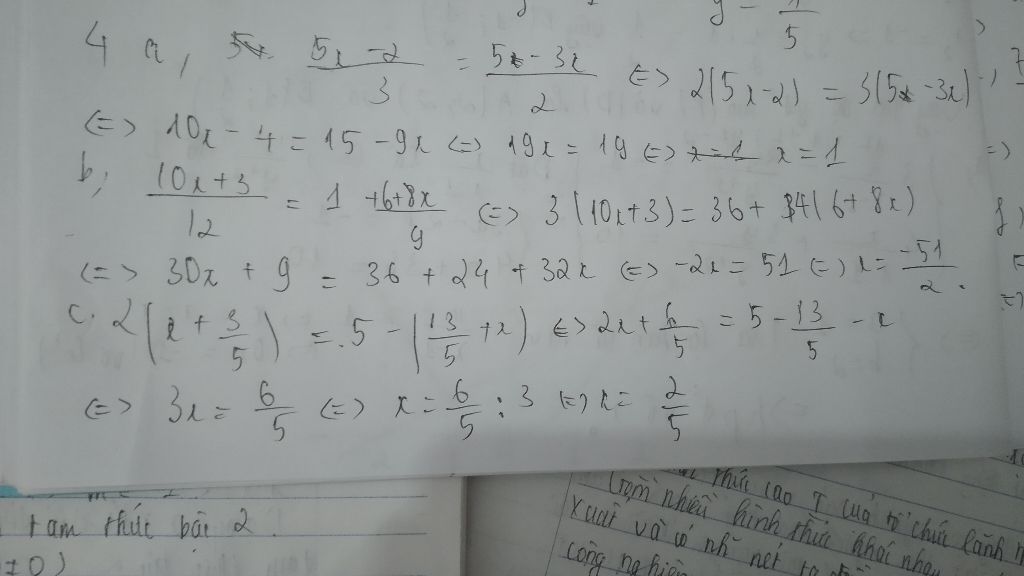 y = 1/5
4 a, (5x-2)/3 = (5 - 3x)/2 <=> 2(5x-2) = 3(5 - 3x)
<=> 10x - 4 = 15 - 9x <=> 19x = 19 <=> x = 1 x = 1
b, (10x+3)/12 = 1 + (6+8x)/9 <=> 3(10x+3) = 36 + 4(6+8x)
<=> 30x + 9 = 36 + 24 + 32x <=> -2x = 51 <=> x = -51/2.
c. 2(x + 3/5) = 5 - (13/5 + x) <=> 2x + 6/5 = 5 - 13/5 - x
<=> 3x = 6/5 <=> x = 6/5 : 3 <=> x = 2/5
tam thức bậi 2
thức cao T của tổ chức lãnh
Gồm nhiều hình thức khai nhau
xuất và có nh nét
công nghiệp